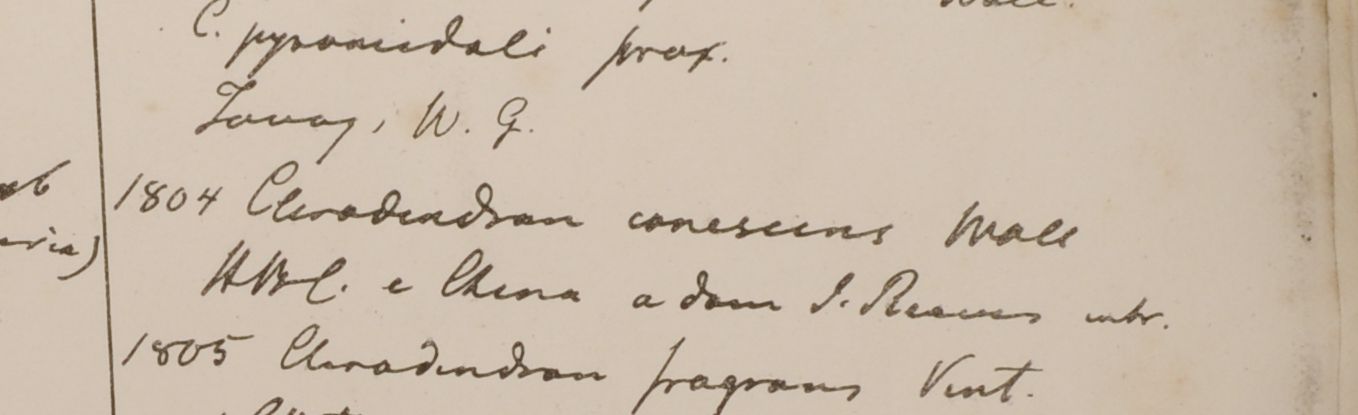 Wall.
C. pyramidali prox.
Tavoy, W. G.
1804 Clerodendron canescens Wall
HBC. e China a dom J. Reeves intr.
1805 Clerodendron fragrans Vent.